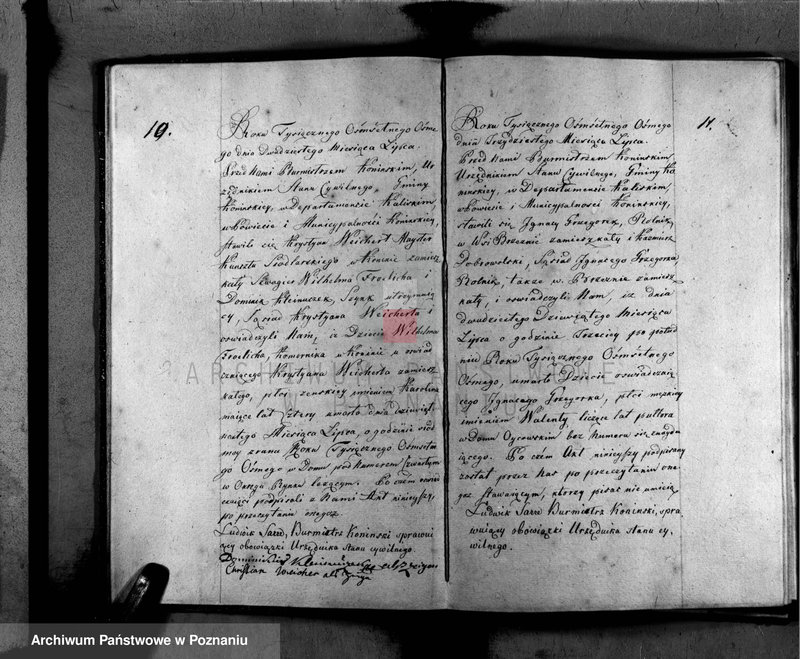 10.
Roku Tysiącznego Ośmsetnego Ośme-
go dnia Dwudziestego Miesiąca Lipca.
Przed Nami Burmistrzem Konińskim, Ur-
zędnikiem Stanu Cywilnego, Gminy
Konińskiey, w Departamencie Kaliskim,
w Powiecie i Municypalności Konińskiey,
stawili się Krystyan Weichert Mayster
Kunsztu Siodlarskiego w Koninie zamiesz-
kały Szwagier Wilhelma Froelicha i
Dominik Kleinuczek, Szynk utrzymuią-
cy, Sąsiad Krystyana Weicherta i
oświadczyli Nam, iż Dziecie Wilhelma
Froelicha, Komornika w Koninie u oświad-
czaiącego Krystyana Weicherta zamiesz-
kałego, płci zenskiey imieniem Karolina
maiące lat Cztery umarło dnia dziewięt-
nastego Miesiąca Lipca, o godzinie siód-
mey zrana Roku Tysiącznego Ośmsetne-
go Osmego w Domu pod Numerem Czwartym
w Okręgu Rynku leżącym. Po czem oświad-
czaiący podpisali z Nami Akt ninieyszy,
po przeczytaniu onegoż
Ludwik Sared, Burmistrz Koninski sprawuią-
cy obowiązki Urzędnika Stanu cywilnego.
Christian Weicher als Zeuge
11.
Roku Tysiącznego Ośmsetnego Osmego
dnia Trzydziestego Miesiąca Lipca.
Przed Nami Burmistrzem Konińskim
Urzędnikiem Stanu Cywilnego, Gminy Ko-
nińskiey, w Departamencie Kaliskim,
w Powiecie i Municypalności Konińskiey,
stawili się Ignacy Grzegorek, Rolnik,
w Wsi Brzeznie zamieszkały i Kazimierz
Dobrowolski, Sąsiad Ignacego Grzegorka
Rolnik, także w Brzeznie zamiesz-
kały, i oświadczyli Nam, iż dnia
dwudziestego Dziewiątego Miesiąca
Lipca o godzinie Trzeciey po połud-
niu Roku Tysiącznego Ośmsetnego
Osmego, umarło Dziecie oświadczaią-
cego Ignacego Grzegorka, płci męzkiey
imieniem Walenty, liczące lat pułtora
w Domu Oycowskim bez Numeru się znaydu-
iącego. Po czem Akt ninieyszy podpisany
został przez Nas po przeczytaniu one-
goż stawaiącym, ktorzy pisać nie umieią.
Ludwik Sared Burmistrz Koninski, spra-
wuiący obowiązki Urzędnika Stanu cy-
wilnego.
Archiwum Państwowe w Poznaniu